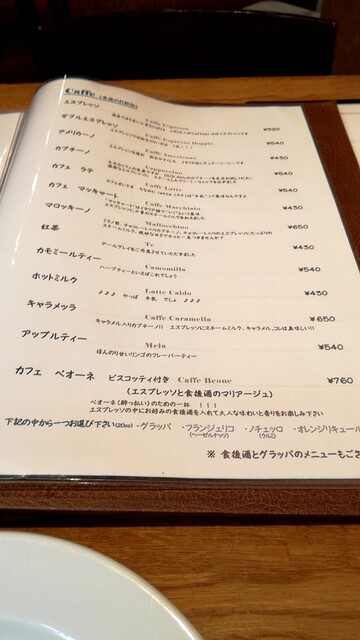 Caffe (食後のお飲物)
エスプレッソ Caffe Espresso ¥320
ダブルエスプレッソ Caffe Espresso Doppio ¥540
アメリカーノ Caffe Americano ¥430
カプチーノ Cappuccino ¥540
カフェ ラテ Caffe Latte ¥540
カフェ マッキャート Caffe Macchiato ¥430
マロッキーノ Marocchino ¥650
紅茶 Te ¥430
アールグレイをご用意させていただきました
カモミールティー Camomilla ¥540
ハーブティーといえばこれでしょう
ホットミルク Latte Caldo ¥430
♪♪♪ やっぱ 牛乳 でしょ ♪♪♪
キャラメッラ Caffe Caramella ¥650
キャラメル入りカプチーノ!! エスプレッソにスチームミルク、キャラメル、コレは美味しい!!
アップルティー Mela ¥540
ほんのり甘いリンゴのフレーバーティー
カフェ ベオーネ ビスコッティ付き Caffe Beone ¥760
(エスプレッソと食後酒のマリアージュ)
ベオーネ(酔っ払い)のための一杯 !!!
エスプレッソの中にお好みの食後酒を入れて大人な味わいと香りをお楽しみ下さい
下記の中から一つお選び下さい(20cc) ・グラッパ ・フランジェリコ ・ノチェッロ ・オレンジリキュール
(ヘーゼルナッツ) (クルミ)
※ 食後酒とグラッパのメニューもござ